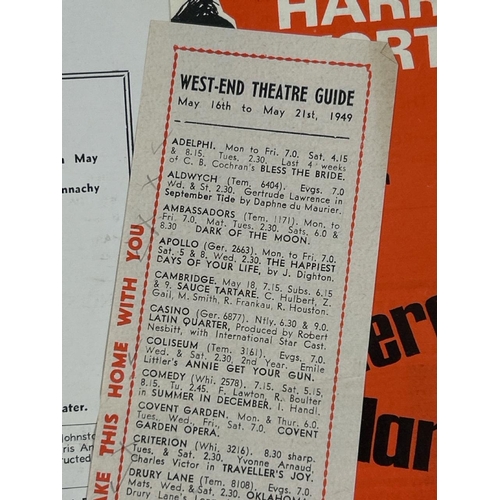 HARR
ORT
WEST-END THEATRE GUIDE
May 16th to May 21st, 1949
ADELPHI. Mon to Fri. 7.0. Sat. 4.15
& 8.15. Tues. 2.30. Last 4 weeks
of C. B. Cochran's BLESS THE BRIDE.
ALDWYCH (Tem. 6404). Evgs. 7.0
Wd. & St. 2.30. Gertrude Lawrence in
September Tide by Daphne du Maurier.
AMBASSADORS (Tem. 1171). Mon. to
Fri. 7.0. Mat. Tues. 2.30. Sats. 6.0 &
8.30 DARK OF THE MOON.
APOLLO (Ger. 2663). Mon. to Fri. 7.0.
Sat. 5 & 8, Wed. 2.30. THE HAPPIEST
DAYS OF YOUR LIFE, by J. Dighton.
CAMBRIDGE. May 18, 7.15. Subs. 6.15
& 9. SAUCE TARTARE. C. Hulbert, Z.
Gail, M. Smith, R. Frankau, R. Houston.
CASINO (Ger. 6877). Ntly. 6.30 & 9.0.
LATIN QUARTER, Produced by Robert
Nesbitt, with International Star Cast.
COLISEUM (Tem. 3161). Evgs. 7.0.
Wed. & Sat. 2.30. 2nd Year. Emile
Littler's ANNIE GET YOUR GUN.
COMEDY (Whi. 2578). 7.15. Sat. 5.15,
8.15. Tu. 2.45. F. Lawton, R. Boulter
in SUMMER IN DECEMBER. I. Handl.
COVENT GARDEN. Mon. & Thur. 6.0.
Tues, Wed, Fri, Sat. 7.0. COVENT
GARDEN OPERA.
CRITERION (Whi. 3216). 8.30 sharp.
Tues. & Sat. 2.30. Yvonne Arnaud,
Charles Victor in TRAVELLER'S JOY.
DRURY LANE (Tem. 8108). Evgs. 7.0
Mats. Wed. & Sat. 2.30. OKLAHOMA
AKE THIS HOME WITH YOU
May
nnachy
ater.
Johnsto
ris An
tructed
erg
lan